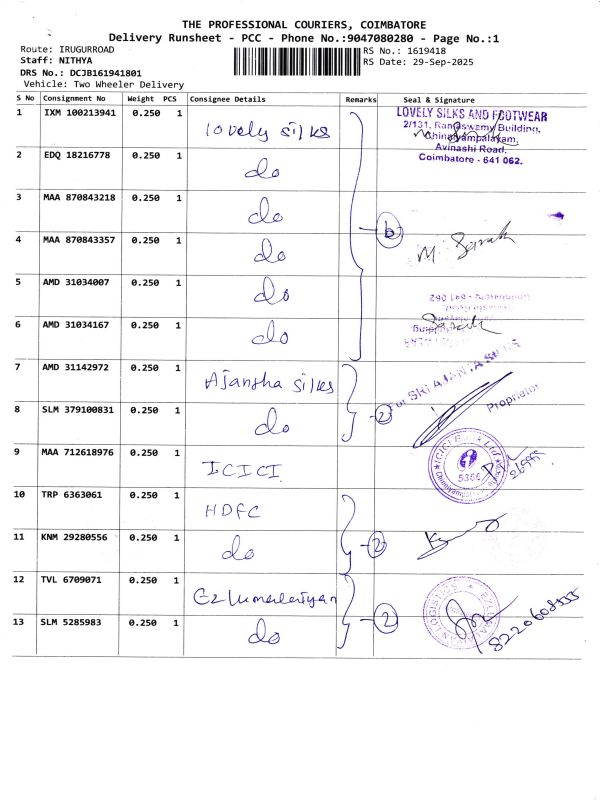 THE PROFESSIONAL COURIERS, COIMBATORE
Delivery Runsheet - PCC - Phone No.:9047080280 - Page No.:1
Route: IRUGURROAD
RS No.: 1619418
Staff: NITHYA
RS Date: 29-Sep-2025
DRS No.: DCJB161941801
Vehicle: Two Wheeler Delivery
S No Consignment No Weight PCS Consignee Details Remarks Seal & Signature
1 IXM 100213941 0.250 1 lovely silks
LOVELY SILKS AND FOOTWEAR
2/131, Rangaswamy Building,
Chinniyampalayam,
Avinashi Road,
Coimbatore - 641 062.
2 EDQ 18216778 0.250 1 do
3 MAA 870843218 0.250 1 do
6
4 MAA 870843357 0.250 1 do M. Sarak
5 AMD 31034007 0.250 1 do
6 AMD 31034167 0.250 1 do
7 AMD 31142972 0.250 1 Ajantha silks
For SRI AJANTA SILKS
Proprietor
8 SLM 379100831 0.250 1 do 2
9 MAA 712618976 0.250 1 ICICI
ICICI Bank Ltd
5366
10 TRP 6363061 0.250 1 HDFC
11 KNM 29280556 0.250 1 do 2
12 TVL 6709071 0.250 1
13 SLM 5285983 0.250 1 do 2
8220608555